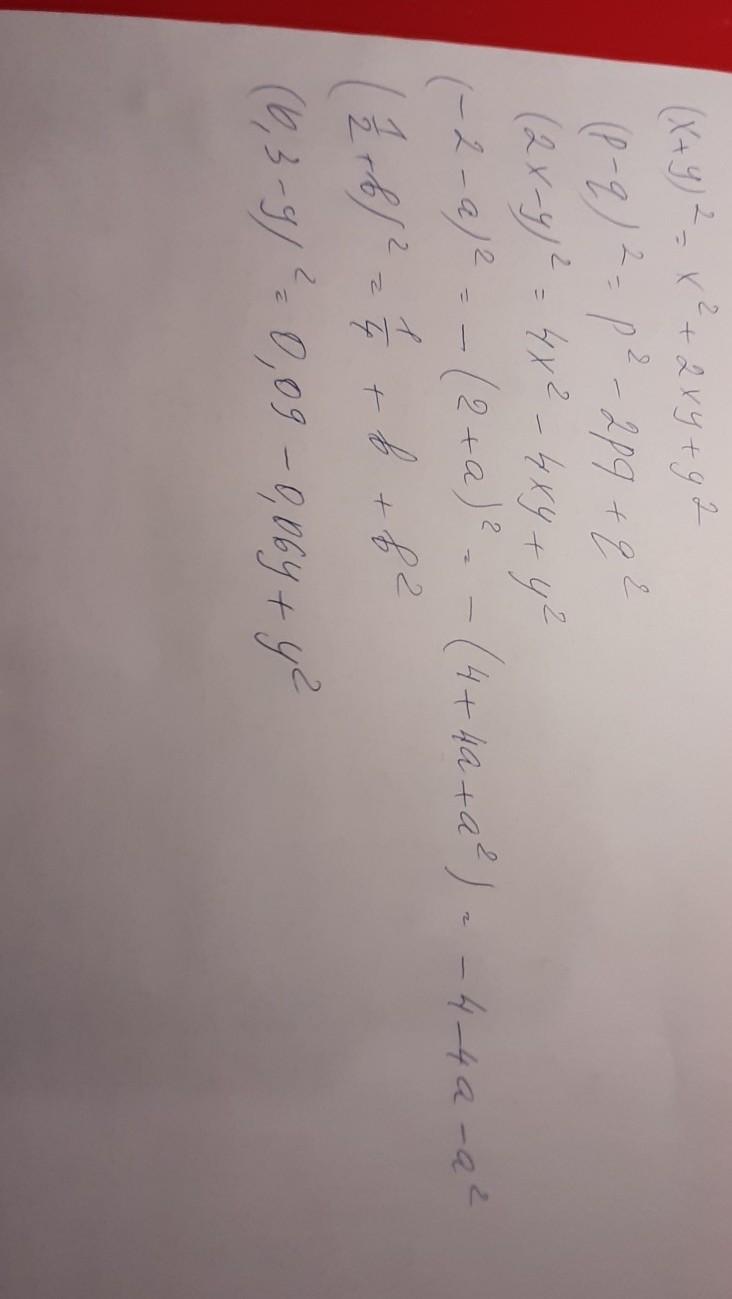 (x+y)² = x² + 2xy + y²
(p-q)² = p² - 2pq + q²
(2x-y)² = 4x² - 4xy + y²
(-2-a)² = -(2+a)² = -(4+4a+a²) = -4-4a-a²
(1/2+b)² = 1/4 + b + b²
(0,3-y)² = 0,09 - 0,06y + y²